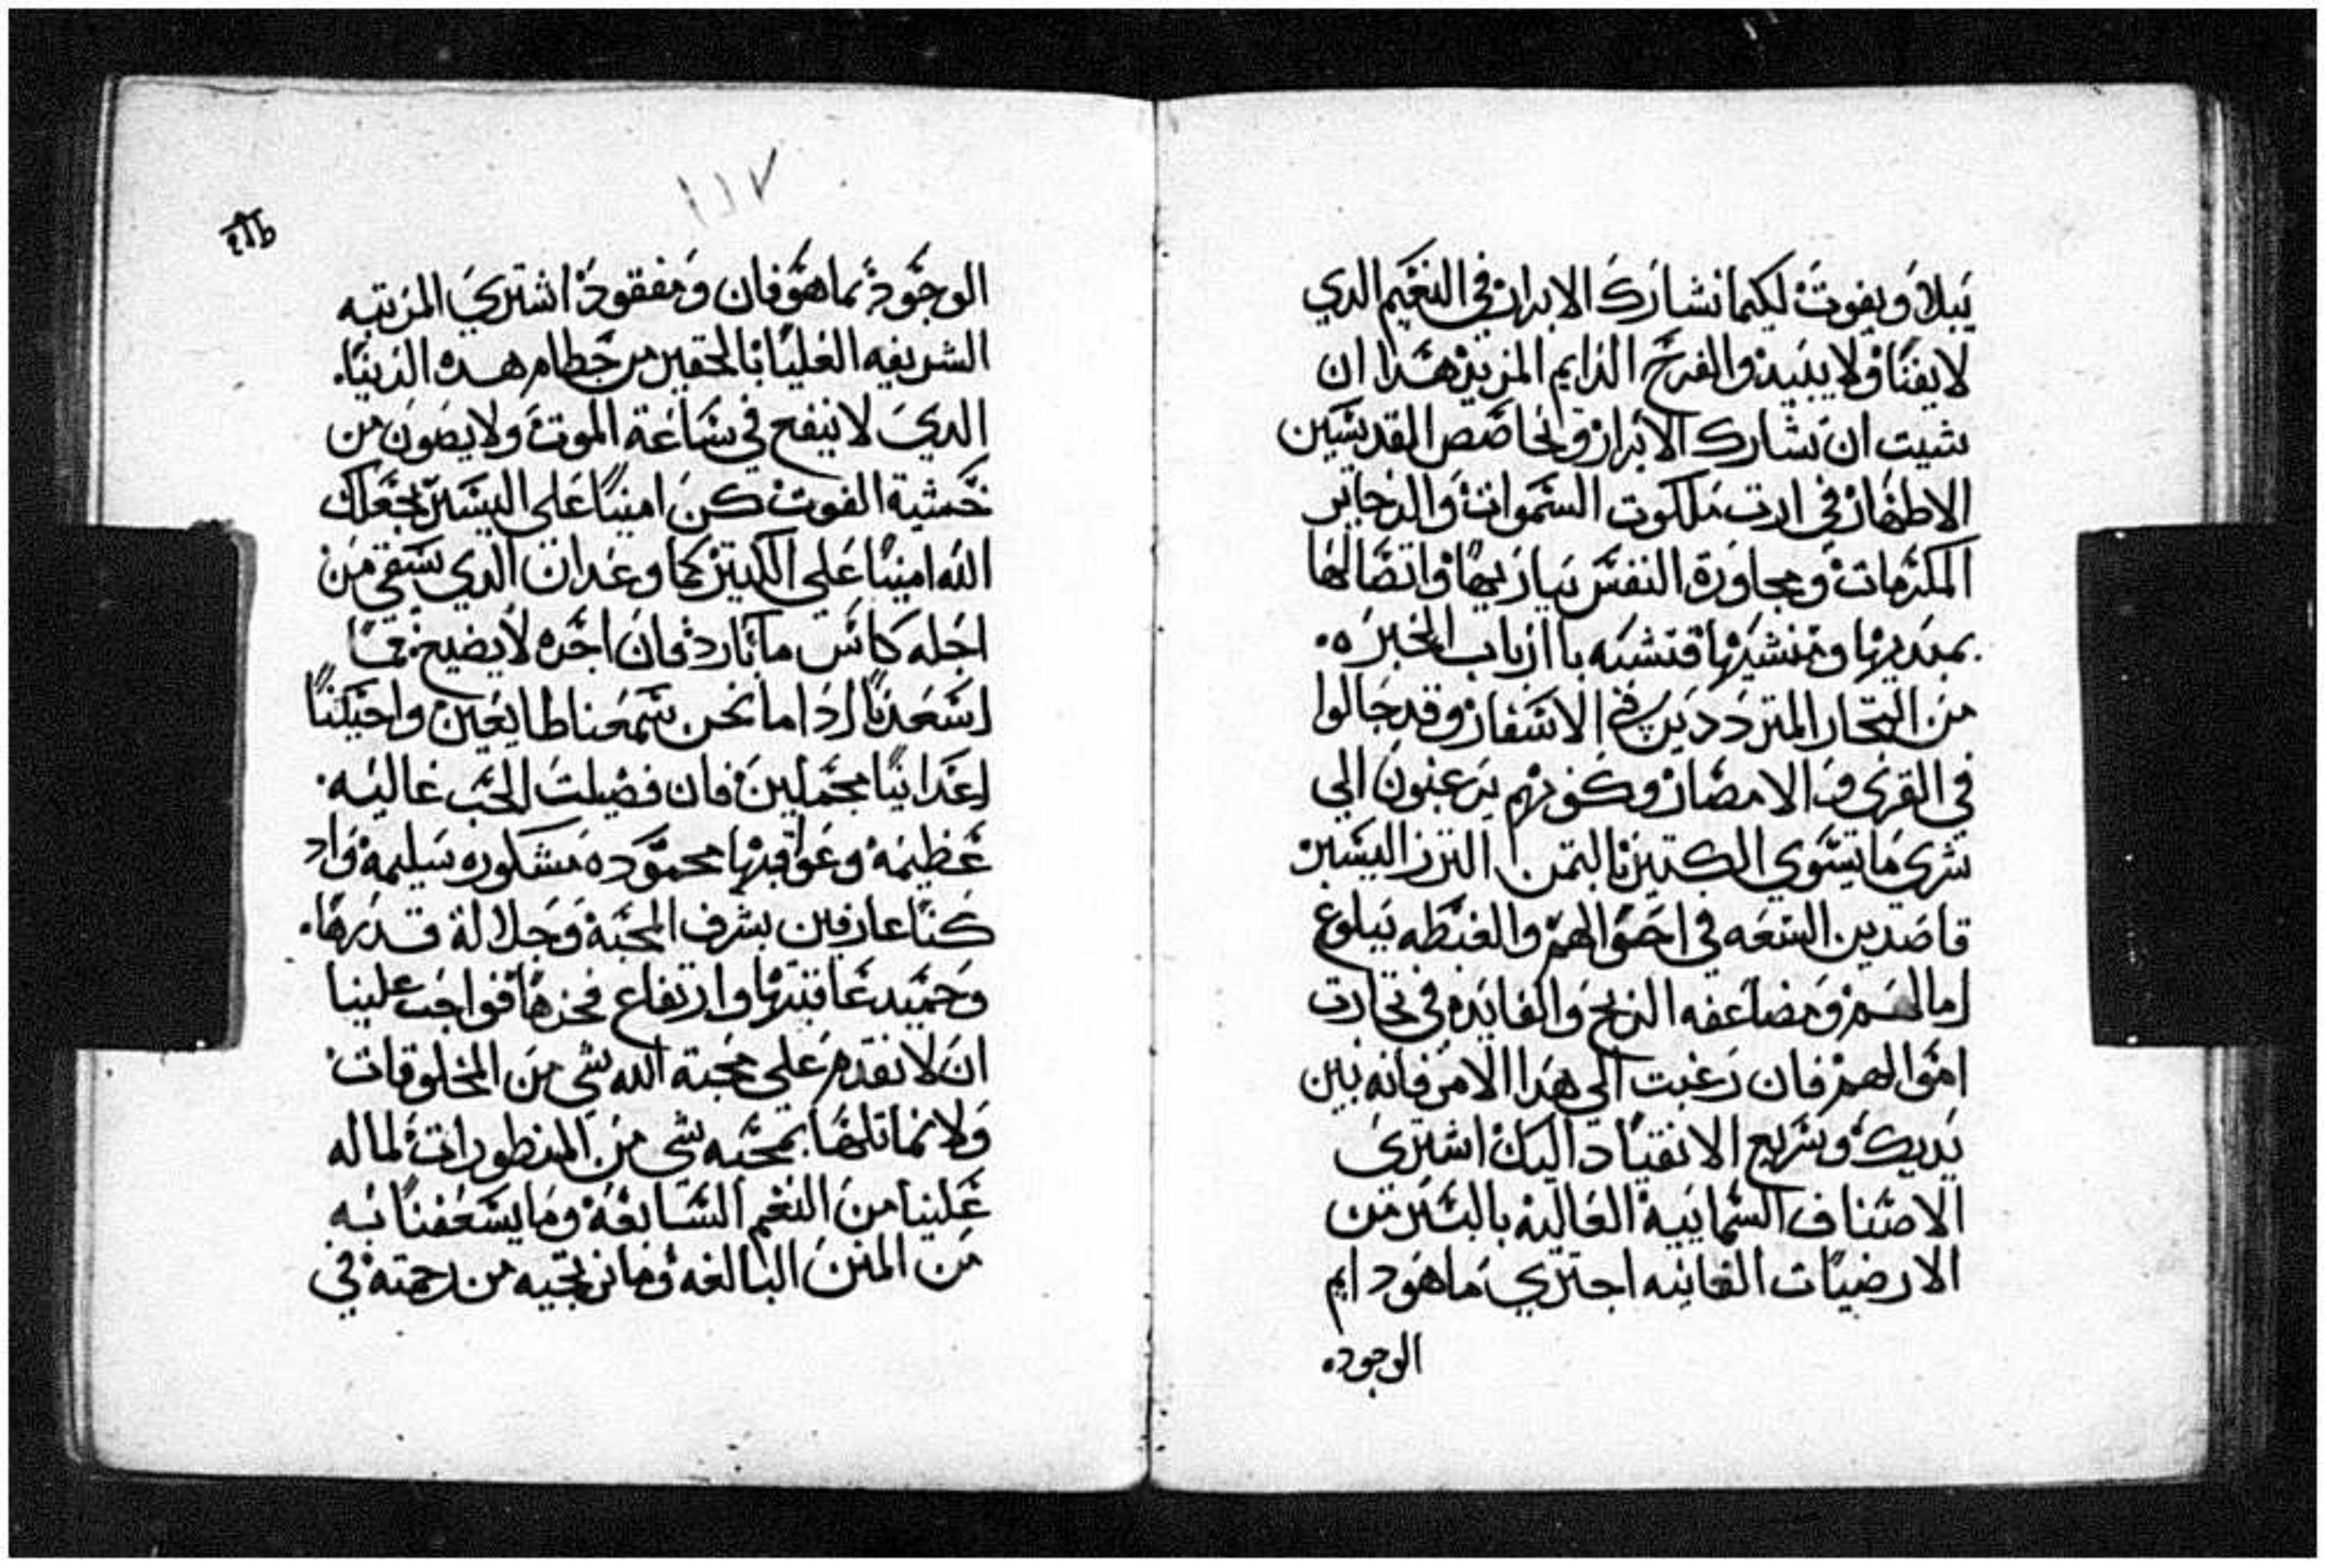 يبلا ويفوت لكيما نشارك الابرار في النعيم الدي
لا يفنا ولا يبيد والفرح الدايم المزيد هدا ان
شيت ان تشارك الابرار وتخاصص القديسين
الاطهار في ارت ملكوت السموات والدخاير
المكرمات ومجاورة النفس بباريها واتصالها
بمبديها ومنشيها فتشبه باارباب الخبره
من التجار المترددين في الاسفار وقد جالوا
في القرى والامصار وكونهم يرغبون الي
شري ما يسوي الكتير بالتمن النزر اليسير
قاصدين السعه في احوالهم والغبطه ببلوغ
امالهم ومضاعفه الربح والفايده في تجارت
اموالهم فان رغبت الي هدا الامر فانه بين
يديك وسريع الانقياد اليك اشتري
الاصناف السمايية الغالية باليسر من
الارضيات الفانيه اجتري ما هو دايم
الوجود
١١٧
الوجود بما هو فان ومفقود اشتري المرتبه
الشريفه العليا بالحقير من حطام هده الدنيا
الدي لا ينفع في ساعة الموت ولا يصون من
خشية الفوت كن امينا علي اليسير يجعلك
الله امينا علي الكتير كما وعد ان الدي يسقي من
اجله كاس ما بارد فان اجره لا يضيع فما
اسعدنا ادا ما نحن سمعنا طايعين واحببنا
اعدانا مجملين فان فضيلت الحب غاليه
عظيمة وعواقبها محموده مشكوره سليمة واد
كنا عارفين بشرف المحبة وجلالة قدرها
وحميد عاقبتها وارتفاع فخرها فواجب علينا
ان لا نقدم علي محبة الله شي من المخلوقات
ولا نماتلها بمحبه شي من المنظورات لما له
علينا من النعم السابغة وما يسعفنا به
من المنن البالغه وما نرتجيه من رحمته في